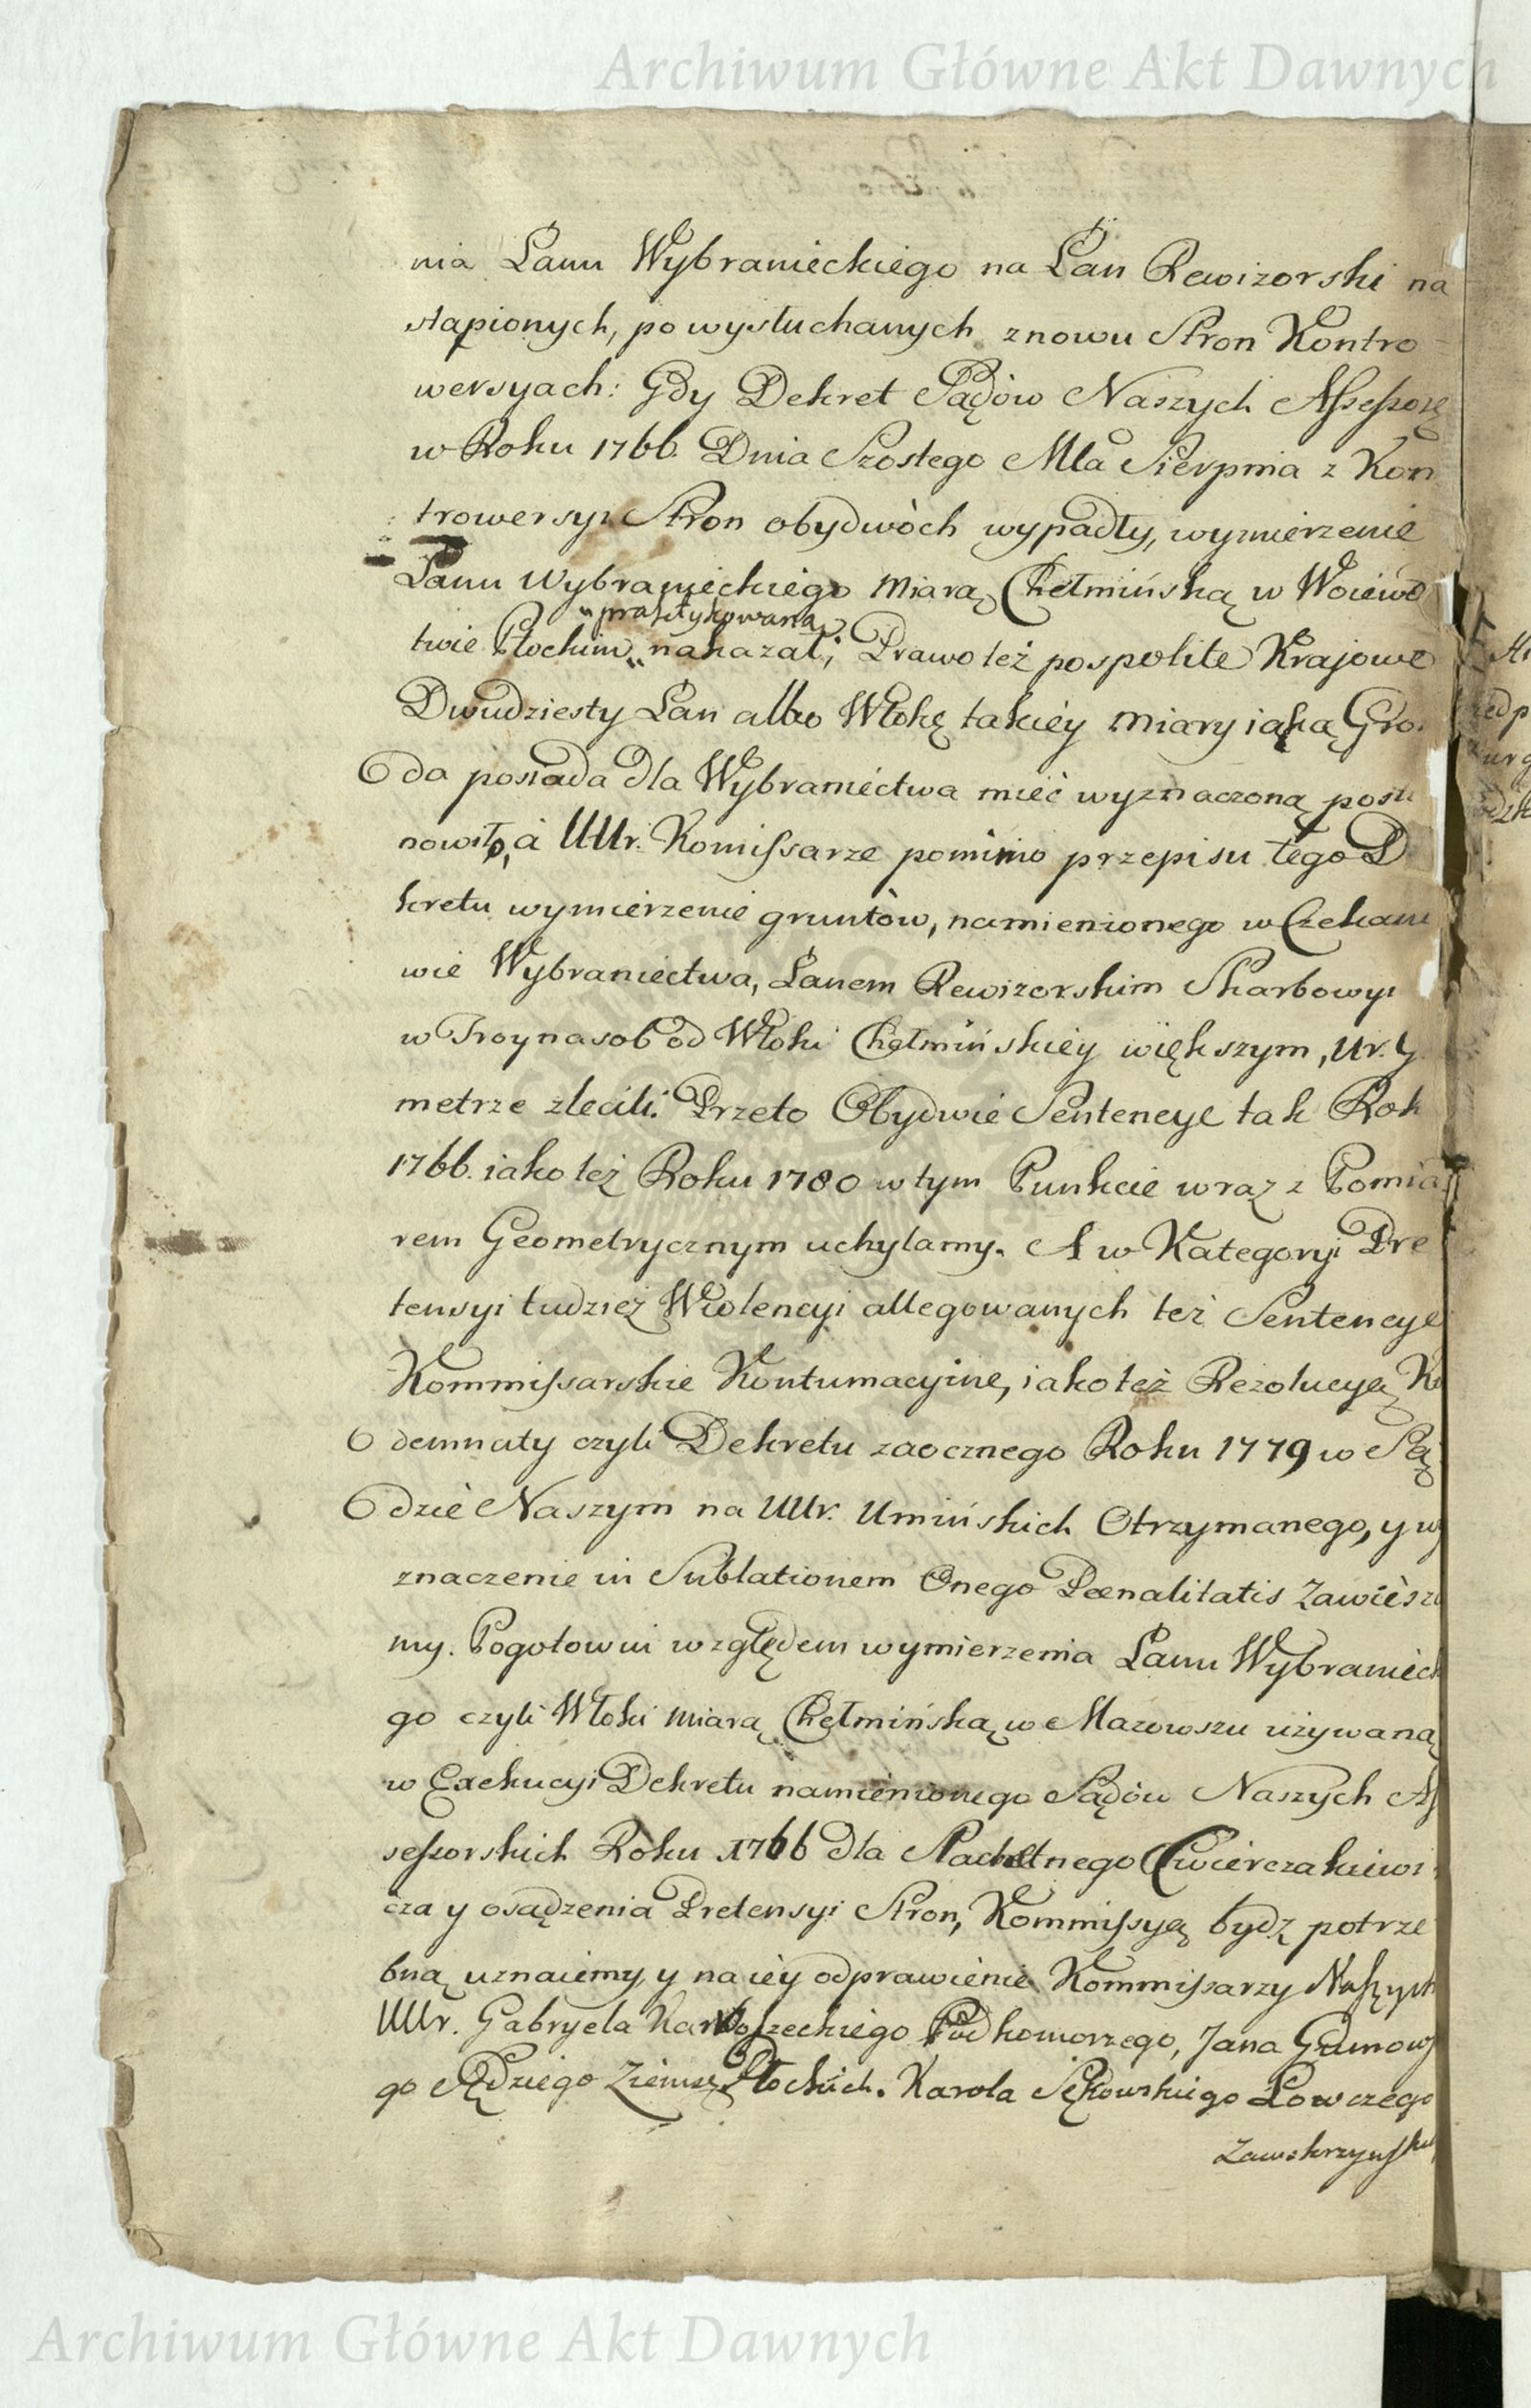 Archiwum Główne Akt Dawnych
nia Łanu Wybranieckiego na Łan Rewizorski na
stąpionych, po wysłuchanych znowu Stron Kontro-
wersyach: Gdy Dekret Sądów Naszych
w Roku 1766. Dnia Szostego Mca Sierpnia z Kon
trowersyi Stron obydwòch wypadły, wymierzenie
Łanu Wybranieckiego Miarą Chełmińską w Woiewo
"praktykowaną
twie Płockim " nakazał; Prawo też pospolite Krajowe
Dwudziesty Łan albo Włokę takiéy Miary iaką Gro
da posiada dla Wybraniectwa mieć wyznaczoną
nowiło, à UUr. Komissarze pomimo przepisu tego D
kretu wymierzenie gruntòw, namienionego w Czekano
wie Wybraniectwa, Łanem Rewizorskim Skarbowy
w Troynasob od Włoki Chełmińskiéy większym, Ur. G
metrze zlecili: Przeto Obydwie Sentencye tak Rok
1766. iako też Roku 1780 w tym Punkcie wraz z Pomia
rem Geometrycznym uchylamy. A w Kategoryi Pre
tensyi tudzież Wiolencyi allegowanych też Sentencye
Kommissarskie Kontumacyine, iako też Rezolucyą Ko
demnaty czyli Dekretu zaocznego Roku 1779 w Są
dzie Naszym na UUr. Umińskich Otrzymanego, y wy
znaczenie in Sublationem Onego Pœnalitatis Zawiésza
my. Pogotowiu względem wymierzenia Łanu Wybranieck
go czyli Włoki miarą Chełmińską w Mazowszu używaną
w Exekucyi Dekretu namienionego Sądów Naszych As
sessorskich Roku 1766 dla Slachetnego Cwierczakiewi
cza y osądzenia Pretensyi Stron, Kommissyą bydź potrze
bną uznaiemy, y na iéy odprawienie Kommissarzy Naszych
UUr. Gabryela Karwosieckiego Podkomorzego, Jana
go Sędziego Ziemsz. Płockich. Karola Sękowskiego Łowczego
Zawskrzyńsk
Archiwum Główne Akt Dawnych